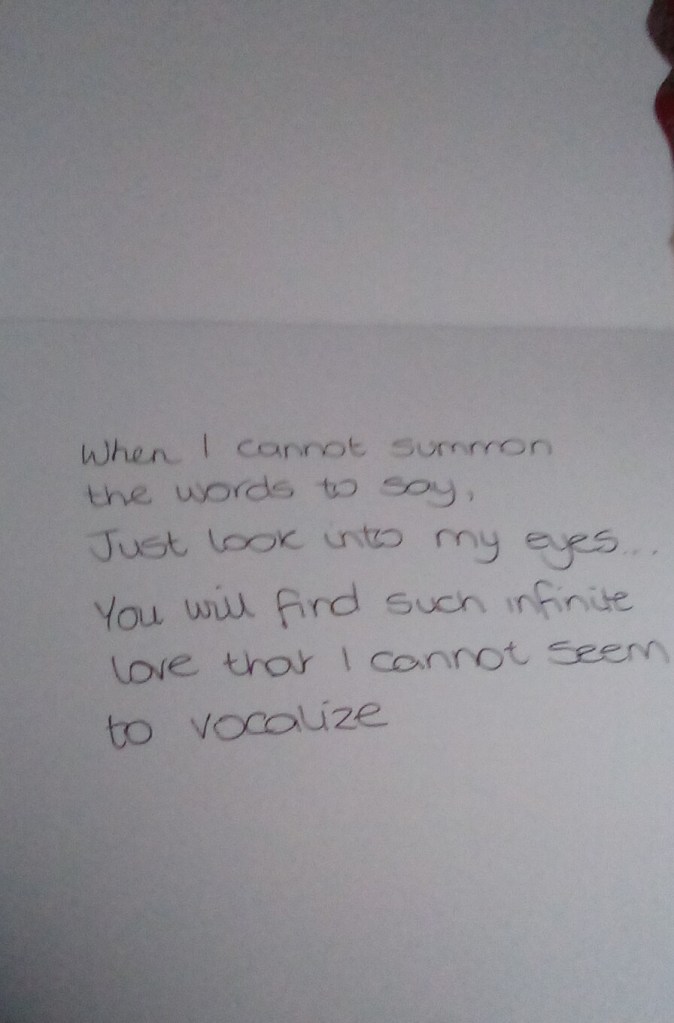 When I cannot summon
the words to say,
Just look into my eyes...
You will find such infinite
love that I cannot seem
to vocalize